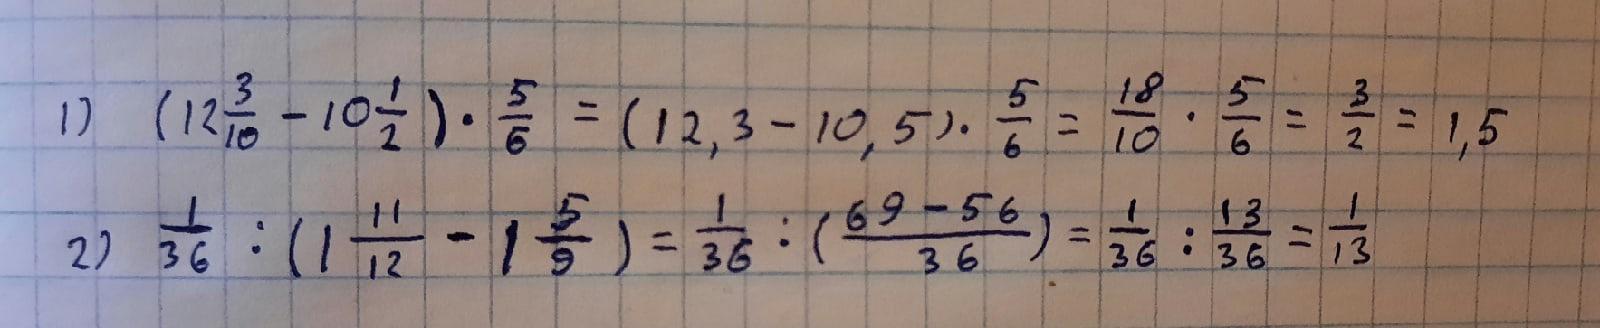 1) (12 3/10 - 10 1/2) · 5/6 = (12,3 - 10,5) · 5/6 = 18/10 · 5/6 = 3/2 = 1,5
2) 1/36 : (1 11/12 - 1 5/9) = 1/36 : ((69 - 56)/36) = 1/36 : 13/36 = 1/13